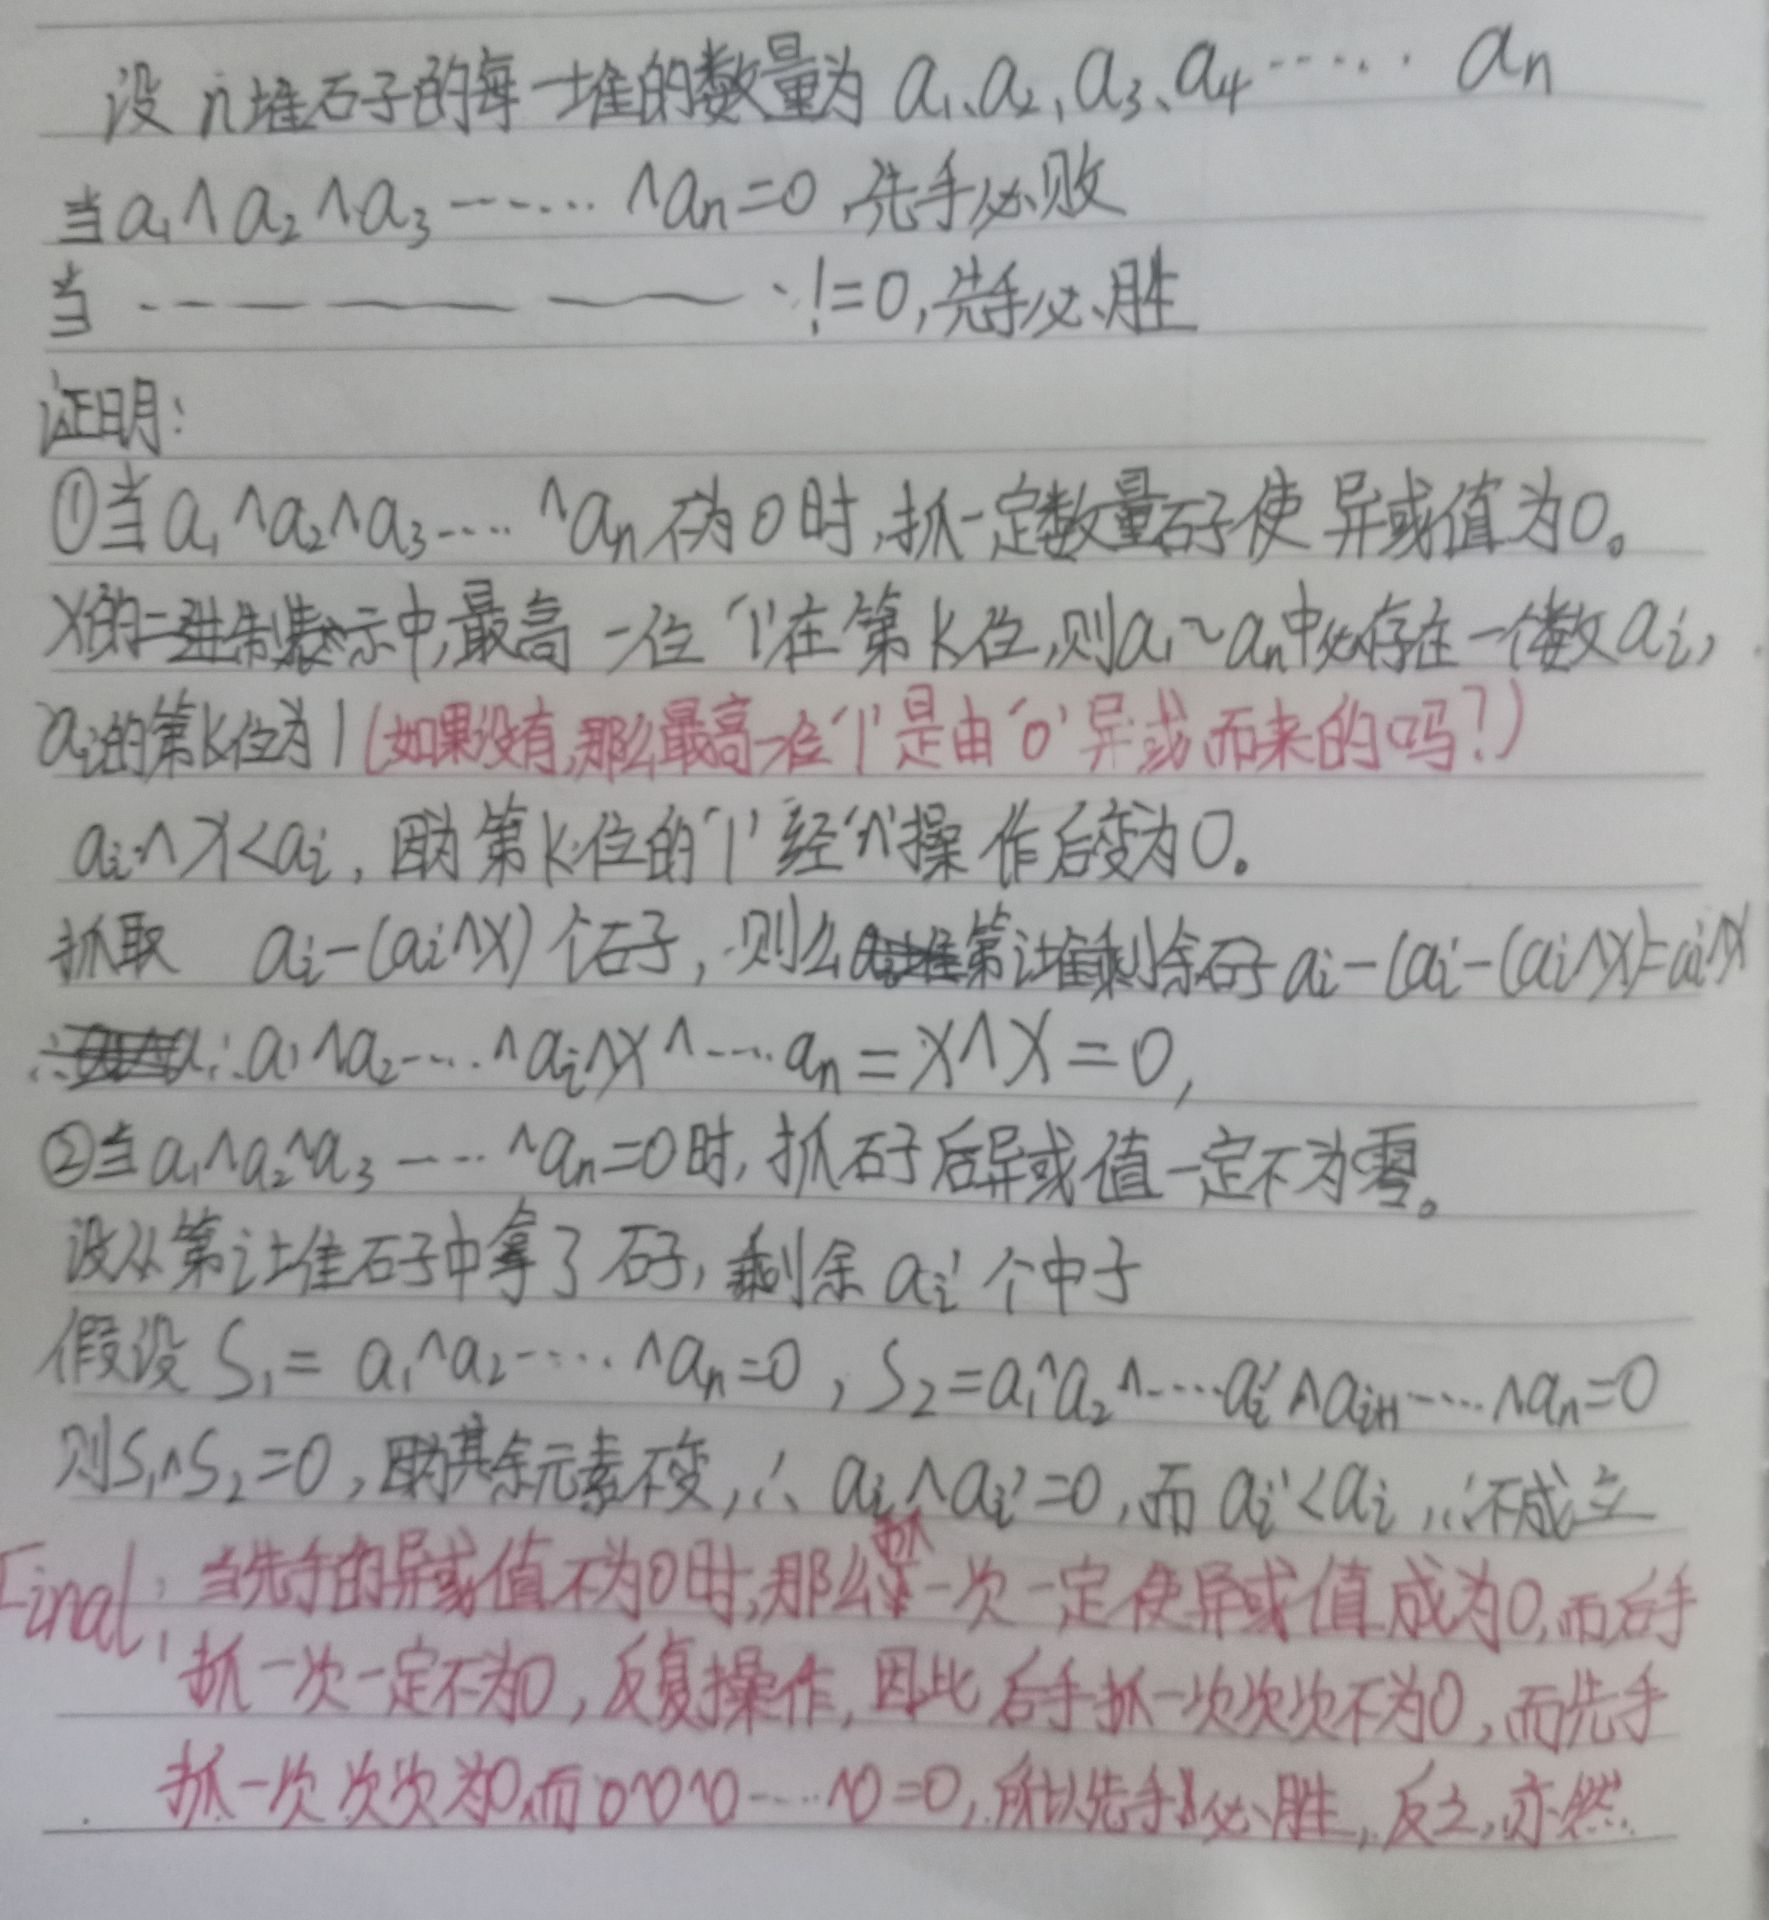 设n堆石子的每一堆的数量为a₁、a₂,a₃、a₄……an
当a₁∧a₂∧a₃……∧an=0,先手必败
当————·!=0,先手必胜
证明:
①当a₁^a₂∧a₃……^an不为0时,抓一定数量石子使异或值为0。
X的二进制表示中,最高一位'1'在第k位,则a₁~an中必存在一个数ai,
ai的第k位为1(如果没有,那么最高一位'1'是由'0'异或而来的吗?)
ai∧X<ai,因为第k位的'1'经'∧'操作后变为0。
抓取 ai-(ai∧X)个石子,则么第i堆剩余石子ai-(ai-(ai∧X)=ai∧X
∴a₁∧a₂……∧ai∧X∧……an=X∧X=0,
②当a₁∧a₂^a₃……^an=0时,抓石子后异或值一定不为零。
设从第i堆石子中拿了石子,剩余ai'个中子
假设S₁=a₁^a₂……∧an=0,S₂=a₁^a₂∧……ai'∧ai+1……∧an=0
则S₁∧S₂=0,因为其余元素不变,∴ai∧ai'=0,而ai'<ai,∴不成立
Final:当先手的异或值不为0时,那么抓一次一定使异或值成为0,而后手
抓一次一定不为0,反复操作,因此后手抓一次次次不为0,而先手
抓一次次次为0,而0^0^0……^0=0,所以先手必胜,反之,亦然.